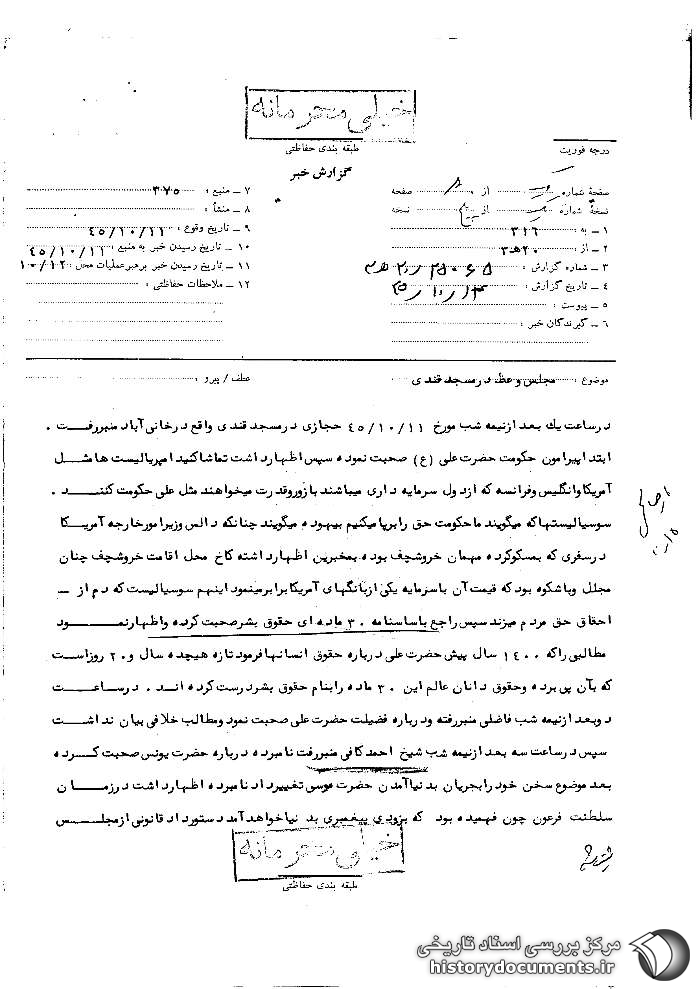 خیلی محرمانه
طبقه بندی حفاظتی
درجه فوریت
گزارش خبر
صفحهٔ شماره از صفحه
نسخهٔ شماره از نسخه
۱ ـ به : ۳۱۶
۲ ـ از : ۲۰ ه‍ ۳
۳ ـ شماره گزارش :
۴ ـ تاریخ گزارش :
۵ ـ پیوست :
۶ ـ گیرندگان خبر :
۷ ـ منبع : ۳۷۵
۸ ـ منشأ :
۹ ـ تاریخ وقوع : ۴۵/۱۰/۱۱
۱۰ ـ تاریخ رسیدن خبر به منبع : ۴۵/۱۰/۱۱
۱۱ ـ تاریخ رسیدن خبر برهبر عملیات محل : ۱۰/۱۲
۱۲ ـ ملاحظات حفاظتی :
موضوع : مجلس وعظ در مسجد قندی
عطف / پیرو :
در ساعت یك بعد از نیمه شب مورخ ۴۵/۱۰/۱۱ حجازی در مسجد قندی واقع در خانی آباد منبر رفت .
ابتدا پیرامون حکومت حضرت علی (ع) صحبت نموده سپس اظهار داشت تماشا کنید امپریالیست ها مثل
آمریکا وانگلیس وفرانسه که از دول سرمایه داری میباشند با زور وقدرت میخواهند مثل علی حکومت کنند .
سوسیالیستها که میگویند ما حکومت حق را برپا میکنیم بیهوده میگویند چنانکه دالس وزیر امور خارجه آمریکا
در سفری که بمسکو کرده مهمان خروشچف بوده بمخبرین اظهار داشته کاخ محل اقامت خروشچف چنان
مجلل وباشکوه بود که قیمت آن با سرمایه یکی از بانگهای آمریکا برابر مینمود اینهم سوسیالیست که دم از ـ
احقاق حق مردم میزند سپس راجع باساسنامه ۳۰ ماده ای حقوق بشر صحبت کرده واظهار نمود
مطالبی را که ۱۴۰۰ سال پیش حضرت علی درباره حقوق انسانها فرمود تازه هیجده سال و ۲۰ روز است
که بآن پی برده وحقوق دانان عالم این ۳۰ ماده را بنام حقوق بشر درست کرده اند . در ساعت
دو بعد از نیمه شب فاضلی منبر رفته ودرباره فضیلت حضرت علی صحبت نمود ومطالب خلافی بیان نداشت
سپس در ساعت سه بعد از نیمه شب شیخ احمد کافی منبر رفت نامبرده درباره حضرت یونس صحبت کرده
بعد موضوع سخن خود را بجریان بدنیا آمدن حضرت موسی تغییر داد نامبرده اظهار داشت در زمان
سلطنت فرعون چون فهمیده بود که بزودی پیغمبری بدنیا خواهد آمد دستور داد قانونی از مجلس
خیلی محرمانه
طبقه بندی حفاظتی
مرکز بررسی اسناد تاریخی
historydocuments.ir